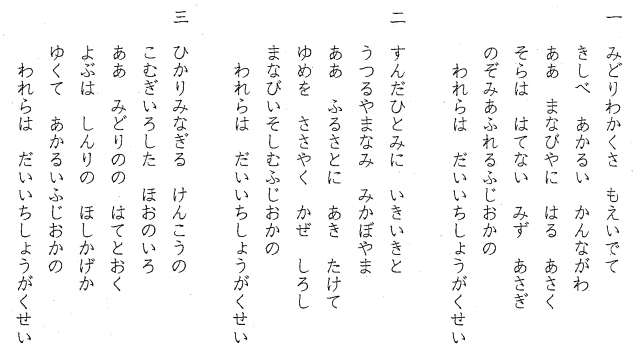 一
みどりわかくさ　もえいでて
きしべ　あかるい　かんながわ
ああ　まなびやに　はる　あさく
そらは　はてない　みず　あさぎ
のぞみあふれるふじおかの
われらは　だいいちしょうがくせい
二
すんだひとみに　いきいきと
うつるやまなみ　みかぼやま
ああ　ふるさとに　あき　たけて
ゆめを　ささやく　かぜ　しろし
まなびいそしむふじおかの
われらは　だいいちしょうがくせい
三
ひかりみなぎる　けんこうの
こむぎいろした　ほおのいろ
ああ　みどりのの　はてとおく
よぶは　しんりの　ほしかげか
ゆくて　あかるいふじおかの
われらは　だいいちしょうがくせい